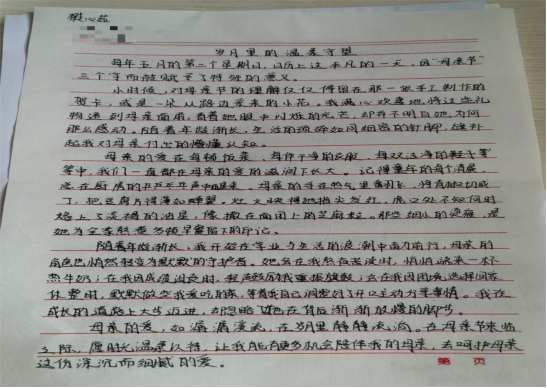 岁月里的温柔守望
每年五月的第二个星期日，日历上这平凡的一天，因“母亲节”
三个字而被赋予了特殊的意义。
小时候，对母亲节的理解仅仅停留在那一张手工制作的
贺卡，或是一朵从路边采来的小花。我满心欢喜地将这些礼
物递到母亲面前，看着她眼中闪烁的光芒，却并不明白她为何
那么感动。随着年龄渐长，生活的琐碎如同细密的针脚，缝补
起我对母亲付出的懵懂认知。
母亲的爱在每顿饭菜、每件干净的衣服、每双洁净的鞋子等
等中，我们一直都在母亲的爱的滋润下长大。记得童年的每个清晨，
总在厨房的乒乒乓乓声中醒来。母亲的手在热气里翻飞，将
把豆腐片得薄如蝉翼。灶火映得她指尖发红，虎口处不知何时
烙上了淡褐的油星，像撒在面团上的芝麻粒。那些细小的
她为全家熬煮岁月早餐留下的印记。
随着年岁渐长，我开始在学业与生活的浪潮中奋力前行，母亲的
角色也悄然转变为默默的守护者。她会在我熬夜苦读时，悄悄端来一杯
热牛奶；在我因成绩沮丧时，轻声鼓励我重振旗鼓；会在我因困境选择闷不
作声时，默默做些我爱吃的菜，等着我自己调整到开口主动分享事情。我在
成长的道路上大步迈进，却忽略了她在背后渐渐放缓的脚步。
母亲的爱，如潺潺溪流，在岁月里静静流淌。在母亲节来临
之际，愿时光温柔以待，让我能有更多机会陪伴我的母亲，去呵护母亲
这份深沉而细腻的爱。
第 页